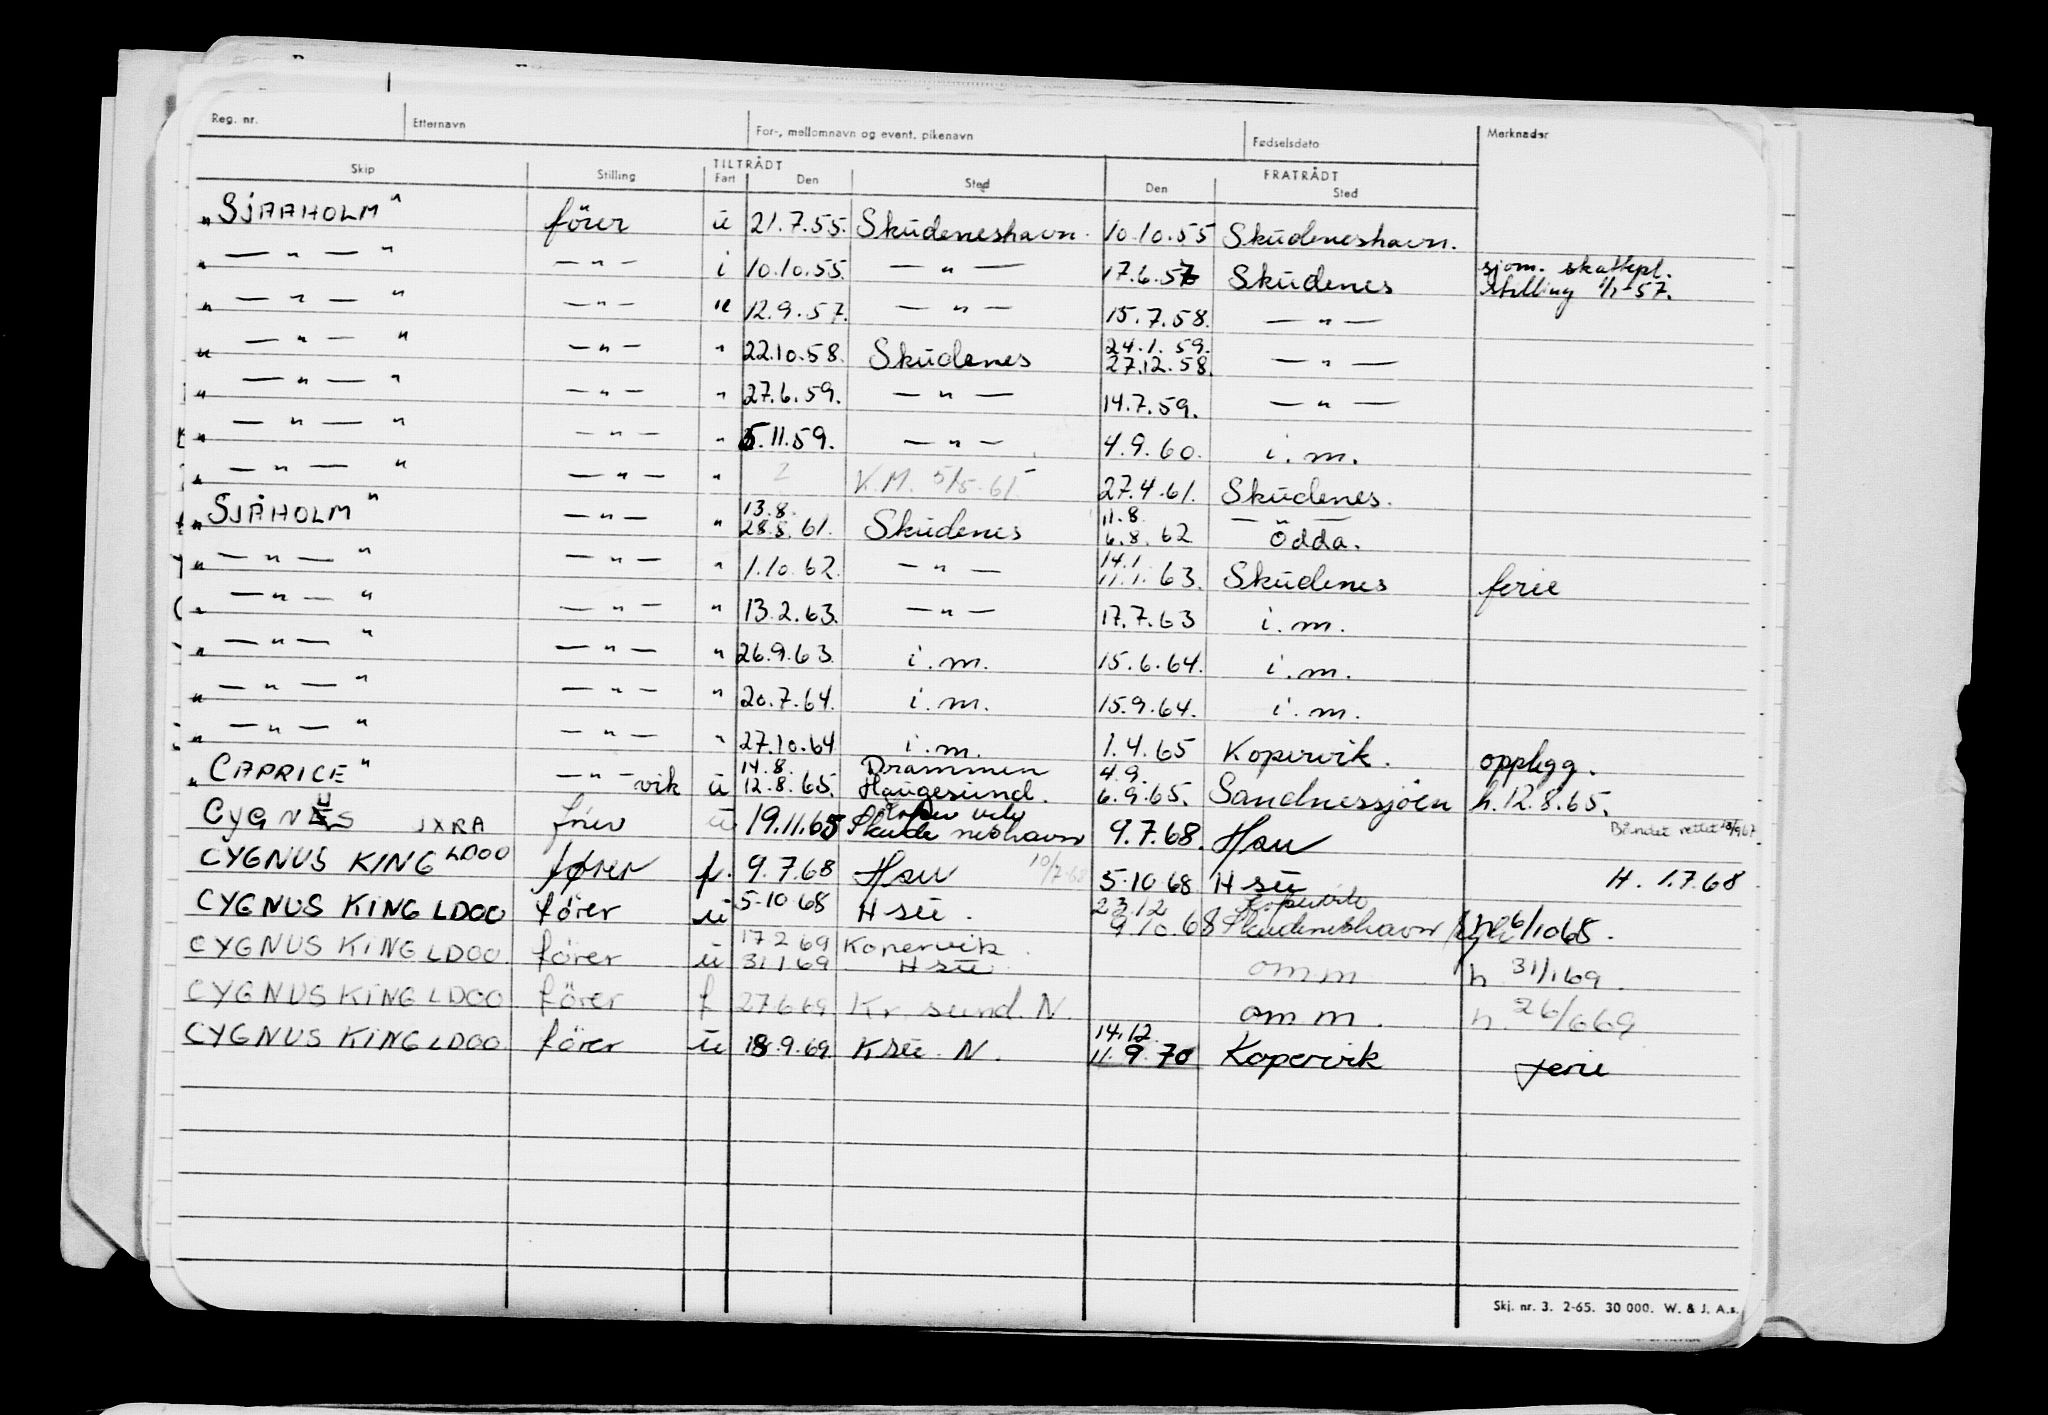 Reg. nr. Etternavn For-, mellomnavn og event. pikenavn Fødselsdato Merknader
TILTRÅDT FRATRÅDT
Skip Stilling Fart Den Sted Den Sted
„SJAAHOLM" förer u 21.7.55. Skudeneshavn. 10.10.55 Skudeneshavn.
„ — " — " — " — i 10.10.55. — " — 17.6.57 Skudenes sjøm. skattepl. stilling 1/1-57.
„ — " — " — " — " 12.9.57. — " — 15.7.58. — " —
„ — " — " — " — " 22.10.58. Skudenes 24.1.59. 27.12.58. — " —
„ — " — " — " — " 27.6.59. — " — 14.7.59. — " —
„ — " — " — " — " 5.11.59. — " — 4.9.60. i.m.
„ — " — " — " — " 2 K.M. 5/5-61 27.4.61. Skudenes.
„SJÅHOLM" — " — " 13.8. 28.5.61. Skudenes 11.8. 6.8.62 — Odda.
„ — " — " — " — " 1.10.62. — " — 14.1 11.1.63. Skudenes ferie
„ — " — " — " — " 13.2.63. — " — 17.7.63 i.m.
„ — " — " — " — " 26.9.63. i.m. 15.6.64. i.m.
„ — " — " — " — " 20.7.64. i.m. 15.9.64. i.m.
„ — " — " — " — " 27.10.64 i.m. 1.4.65 Kopervik. opplegg.
„CAPRICE" — " — vik u 14.8. 12.8.65. Drammen Haugesund. 4.9. 6.9.65. Sandnessjöen h.12.8.65.
CYGNUS JXRA förer u 19.11.65 Kopervik Skudeneshavn 9.7.68. Hau Båndet rettet 18/9 67.
CYGNUS KING LDOO fører f. 9.7.68 Hau 10/7-68 5.10 68 H su H. 1.7.68
CYGNUS KING LDOO förer u 5.10 68 H su. 23.12 9.10.68 Kopervik Skudeneshavn 26/10 65.
CYGNUS KING LDOO förer u 17 2 69 31.1 69 Kopervik H su omm h 31/1 69.
CYGNUS KING LDOO förer f 27 6 69 Kr. sund. N. omm. h. 26/6 69
CYGNUS KING LDOO förer u 18.9.69 K su. N. 14.12. 11.9.70 Kopervik ferie
Skj. nr. 3. 2-65. 30 000. W. & J. A.s.